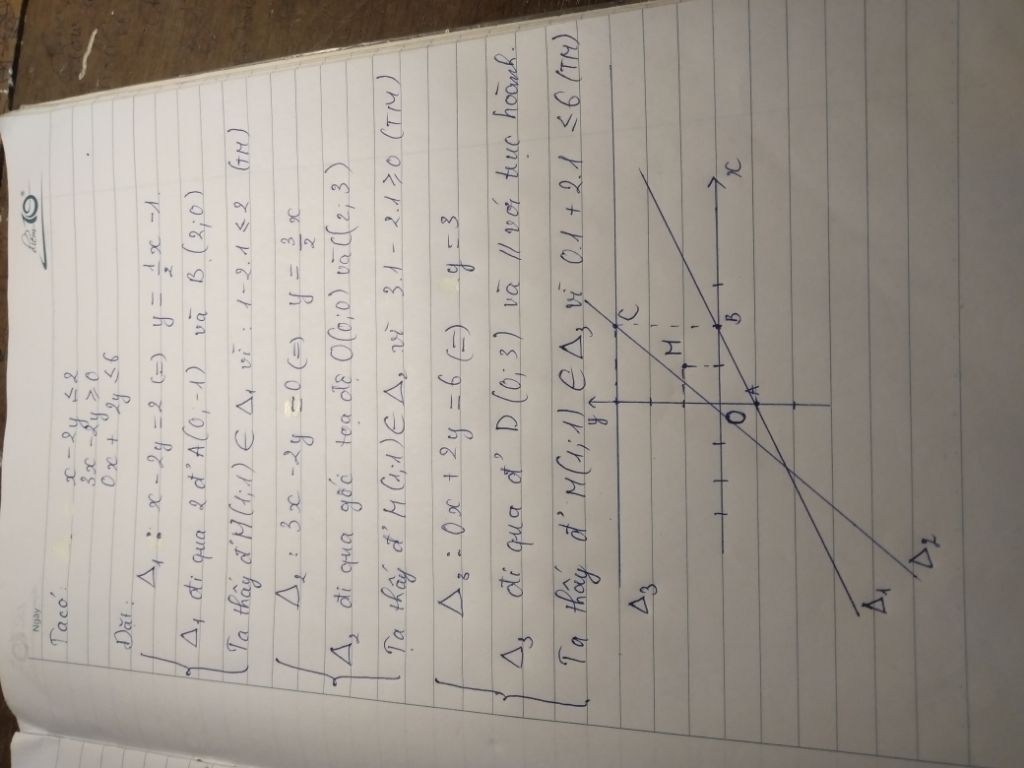 Ngày
Ta có: x - 2y ≤ 2
3x - 2y ≥ 0
0x + 2y ≤ 6
Đặt:
Δ₁ : x - 2y = 2 (=) y = 1/2 x - 1.
Δ₁ đi qua 2 đ' A(0;-1) và B (2;0)
Ta thấy đ' M(1;1) ∈ Δ₁ vì : 1 - 2.1 ≤ 2 (TM)
Δ₂ : 3x - 2y = 0 (=) y = 3/2 x
Δ₂ đi qua gốc toạ độ O(0;0) và C(2;3)
Ta thấy đ' M(1;1) ∈ Δ₂ vì 3.1 - 2.1 ≥ 0 (TM)
Δ₃ : 0x + 2y = 6 (=) y = 3
Δ₃ đi qua đ' D (0;3) và // với trục hoành.
Ta thấy đ' M(1;1) ∈ Δ₃ vì 0.1 + 2.1 ≤ 6 (TM)
y
C
Δ₃
M
O
B
x
A
Δ₁
Δ₂